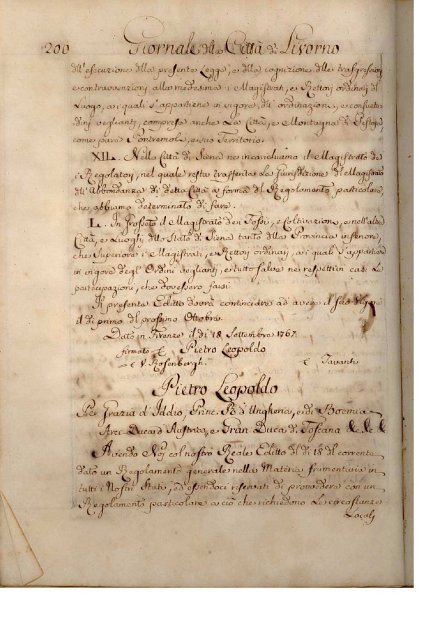 200 Giornale della Città di Livorno
dell'esecuzione della presente Legge, e della cognizione delle trasgressioni
e contravvenzioni alla medesima i Magistrati, e Rettori ordinarj del
Luogo, a i quali s'appartiene in vigore dell'ordinazioni, e consuetu
dini veglianti, compresa anche La Città, e Montagna di Pistoja
come pure Pontremoli, e suo Territorio.
XLIX. Nella Città di Siena ne incarichiamo il Magistrato de
i Regolatori, nel quale resta trasfusa La Giurisdizione del Magistrato
dell'Abbondanza di detta Città a forma del Regolamento particolare
che abbiamo determinato di fare.
L. In Grosseto il Magistrato dei Fossi, e Coltivazioni, e nell'altre
Città, e Luoghi dello Stato di Siena tanto della Provincia inferiore,
che Superiore i Magistrati, e Rettori ordinarj, a i quali s'appartiene
in vigore degl'Ordini veglianti, e tutto salve nei respettivi casi Le
partecipazioni, che dovessero farsi
Il presente Editto dovrà cominciare ad avere il suo vigore
il dì primo del prossimo Ottobre.
Dato in Firenze il dì 18. Settembre 1767.
firmato Pietro Leopoldo
V. Rosenbergh. Tavanti
Pietro Leopoldo
Per Grazia d'Iddio, Princ. R. d'Ungheria, e di Boemia
Arci-Duca d'Austria, e Gran Duca di Toscana &c. &c. &c.
Avendo Noi col nostro Reale Editto del dì 18 del corrente
dato un Regolamento generale nella Materia frumentaria in
tutti i Nostri Stati, ed essendoci riservati di provvedere con un
Regolamento particolare a ciò che richiedono Le circostanze
Locali